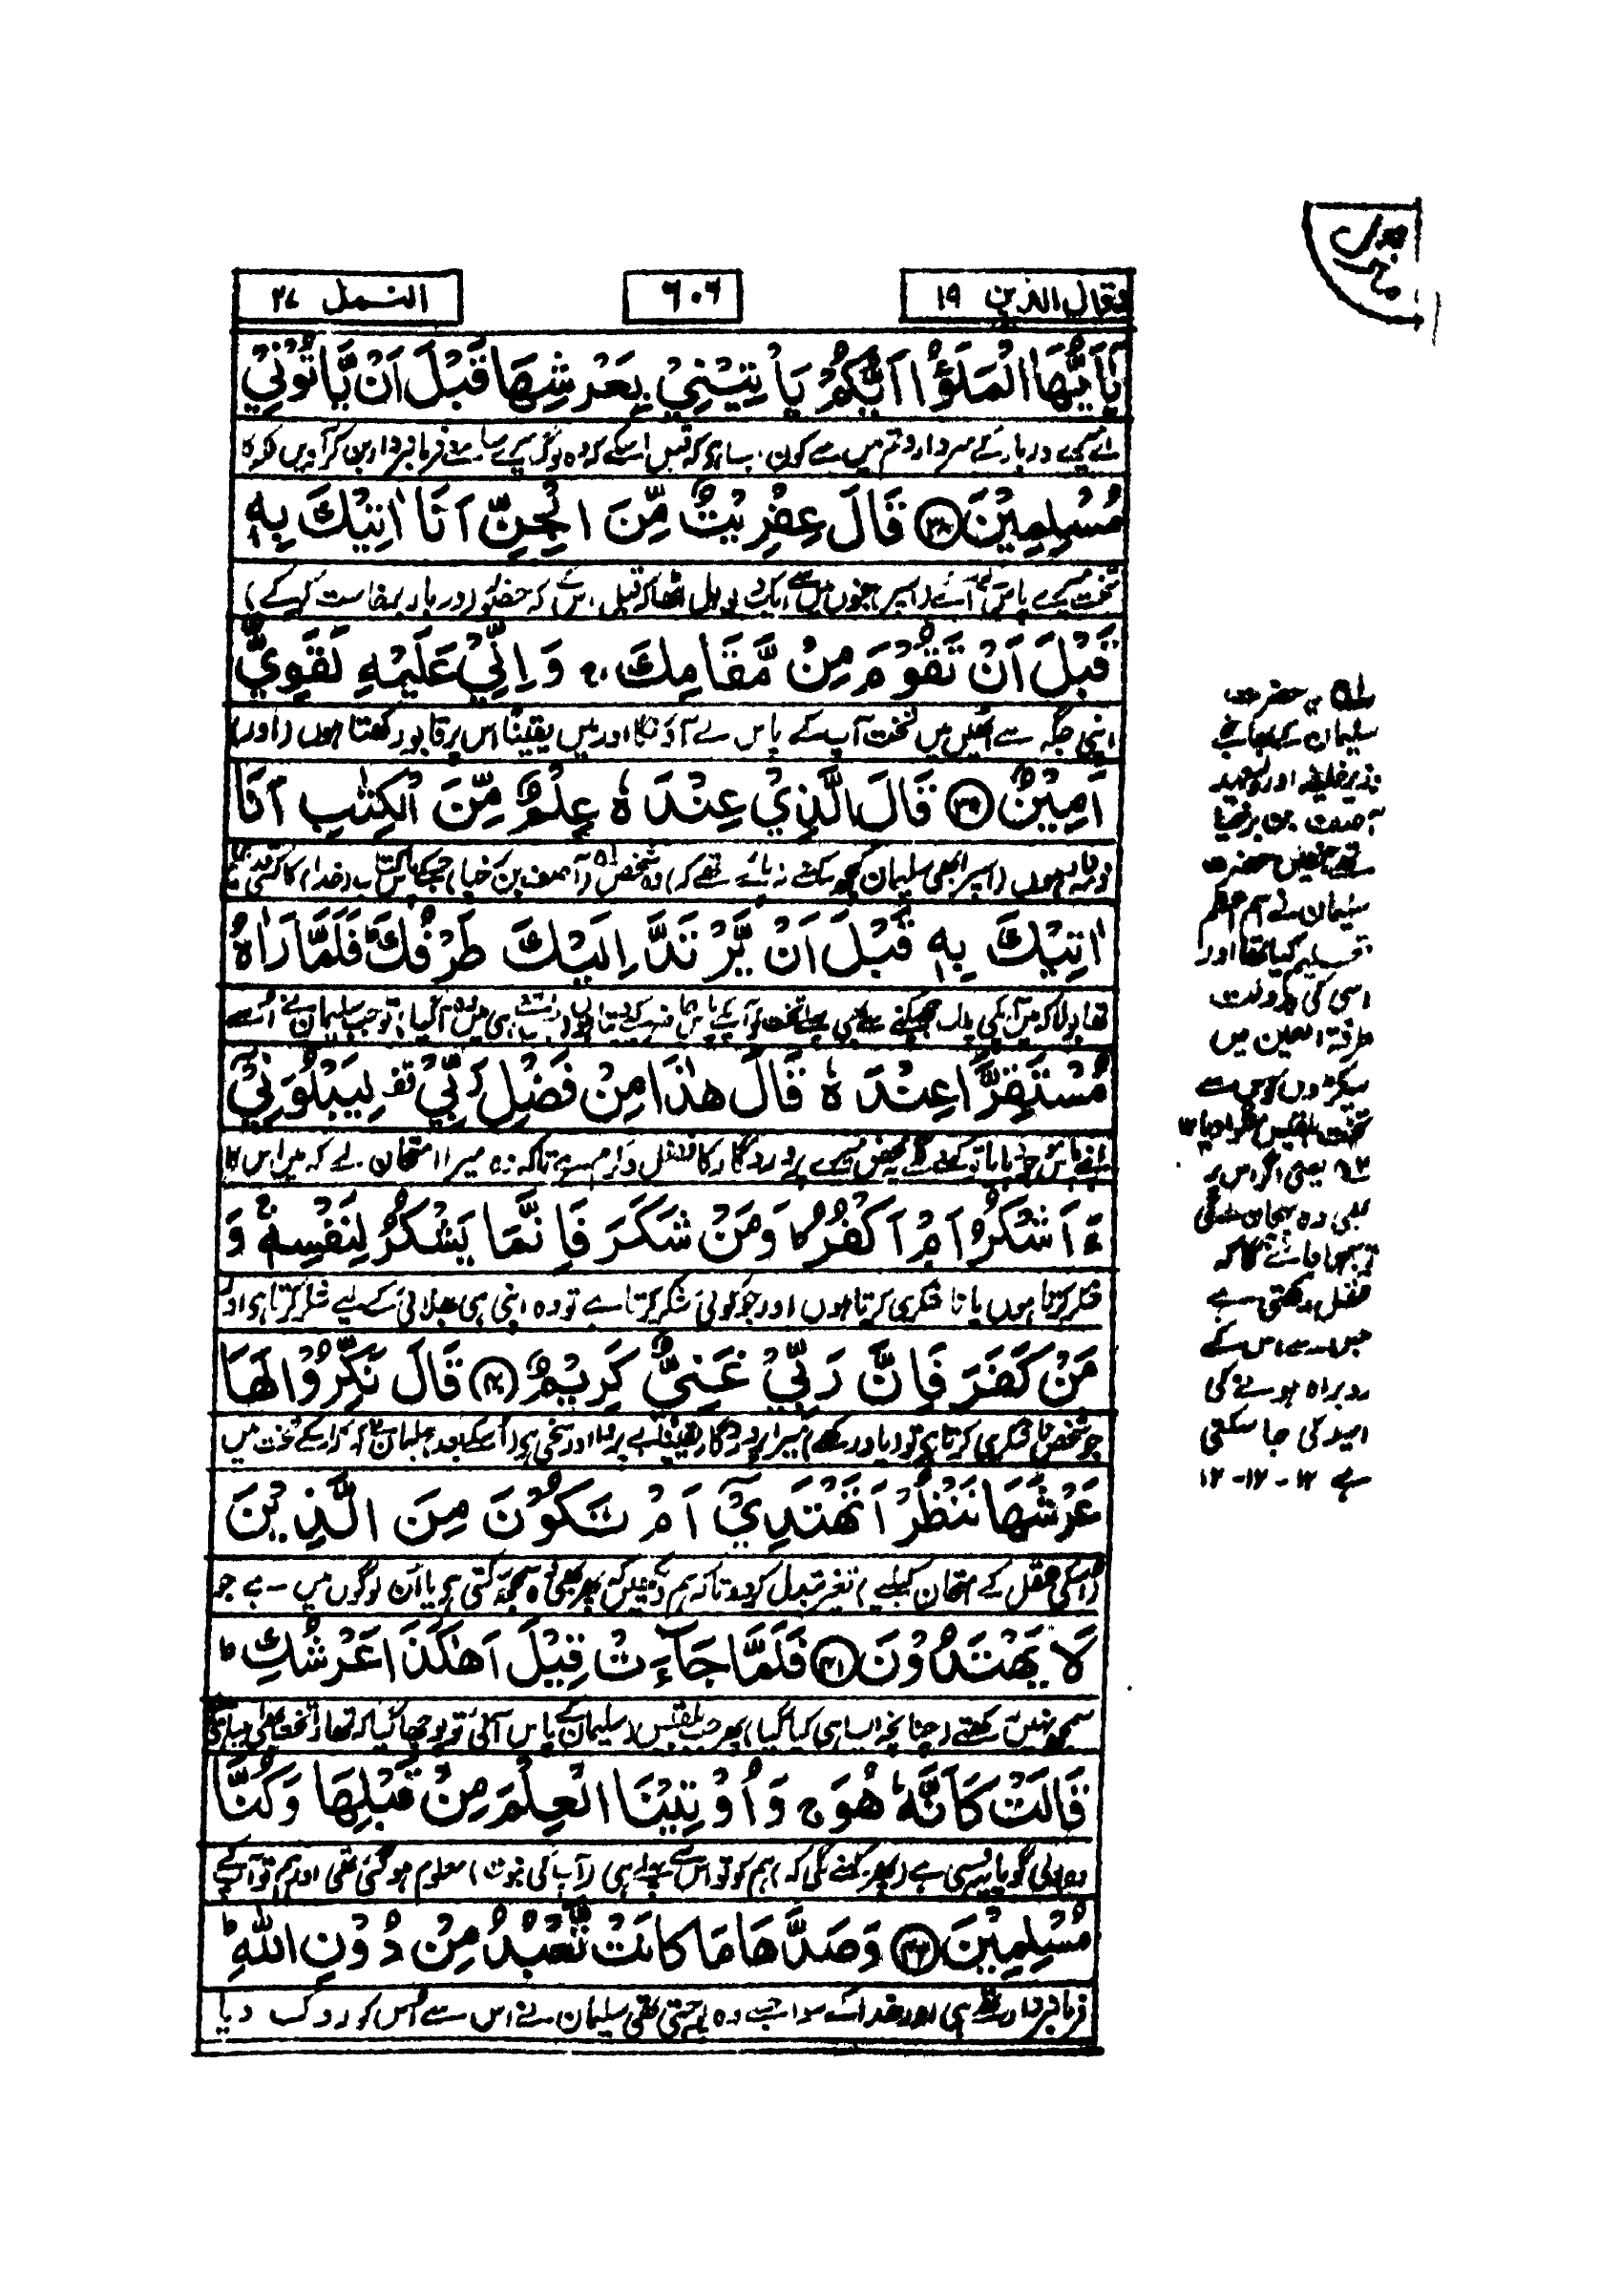 وقال الذين ١٩
٦٠٦
النمل ٢٧
يٰٓاَيُّهَا الْمَلَؤُا اَيُّكُمْ يَاْتِيْنِيْ بِعَرْشِهَا قَبْلَ اَنْ يَّاْتُوْنِيْ
اے میرے دربار کے سردارو تم میں سے کون ایسا ہے کہ قبل اسکے کہ وہ لوگ میرے سامنے فرمانبردار بن کر آئیں
مُسْلِمِيْنَ ﴿٣٨﴾ قَالَ عِفْرِيْتٌ مِّنَ الْجِنِّ اَنَا اٰتِيْكَ بِهٖ
تخت میرے پاس لے آئے (اسپر) جنوں میں سے ایک دیو بول اٹھا کہ قبل اس کے کہ حضور (دربار برخاست کرکے)
قَبْلَ اَنْ تَقُوْمَ مِنْ مَّقَامِكَ ۚ وَ اِنِّيْ عَلَيْهِ لَقَوِيٌّ
اپنی جگہ سے اٹھیں میں تخت آپ کے پاس لے آؤنگا اور میں یقیناً اس پر قابو رکھتا ہوں (اور)
اَمِيْنٌ ﴿٣٩﴾ قَالَ الَّذِيْ عِنْدَهٗ عِلْمٌ مِّنَ الْكِتٰبِ اَنَا
ذمہ دار ہوں (اسپر ابھی سلیمان کچھ کہنے نہ پائے تھے کہ) وہ شخص (آصف بن برخیا) جسکے پاس کتاب (خدا) کا کسی قدر علم
اٰتِيْكَ بِهٖ قَبْلَ اَنْ يَّرْتَدَّ اِلَيْكَ طَرْفُكَ ؕ فَلَمَّا رَاٰهُ
تھا بولا کہ میں آپکی پلک جھپکنے سے پہلے تخت کو آپ کے پاس حاضر کیے دیتا ہوں آگیا تو جب سلیمان نے اُسے
مُسْتَقِرًّا عِنْدَهٗ قَالَ هٰذَا مِنْ فَضْلِ رَبِّيْ ۖ لِيَبْلُوَنِيْٓ
اپنے پاس موجود پایا تو کہنے لگے یہ محض میرے پروردگار کا فضل و کرم ہے تاکہ وہ میرا امتحان لے کہ میں اس کا
ءَاَشْكُرُ اَمْ اَكْفُرُ ؕ وَمَنْ شَكَرَ فَاِنَّمَا يَشْكُرُ لِنَفْسِهٖ ۚ وَ
شکر کرتا ہوں یا ناشکری کرتا ہوں اور جو کوئی شکر کرتا ہے تو وہ اپنی ہی بھلائی کے لیے شکر کرتا ہی اور
مَنْ كَفَرَ فَاِنَّ رَبِّيْ غَنِيٌّ كَرِيْمٌ ﴿٤٠﴾ قَالَ نَكِّرُوْا لَهَا
جو شخص ناشکری کرتا ہی تو (یاد رکھیے) میرا پروردگار یقیناً بے پروا اور سخی ہی (اسکے بعد) سلیمان نے کہا کہ اسکے تخت میں
عَرْشَهَا نَنْظُرْ اَتَهْتَدِيْٓ اَمْ تَكُوْنُ مِنَ الَّذِيْنَ
(اسکی عقل کے امتحان کیلیے) تغیر تبدل کردو تاکہ ہم دیکھیں کہ پھر بھی وہ سمجھ سکتی ہی یا اُن لوگوں میں سے ہے جو
لَا يَهْتَدُوْنَ ﴿٤١﴾ فَلَمَّا جَآءَتْ قِيْلَ اَهٰكَذَا عَرْشُكِ ؕ
سمجھ نہیں رکھتے (چنانچہ ایسا ہی کیا گیا) پھر جب بلقیس (سلیمان کے پاس) آئی تو پوچھا گیا کہ تمھارا تخت بھی ایسا ہی
قَالَتْ كَاَنَّهٗ هُوَ ۚ وَ اُوْتِيْنَا الْعِلْمَ مِنْ قَبْلِهَا وَ كُنَّا
وہ بولی گویا یہ وہی ہے (پھر کہنے لگی کہ) ہم کو تو اس سے پہلے ہی (آپ کی نبوت) معلوم ہو گئی تھی اور ہم تو آپ کے
مُسْلِمِيْنَ ﴿٤٢﴾ وَصَدَّهَا مَا كَانَتْ تَّعْبُدُ مِنْ دُوْنِ اللّٰهِ ؕ
فرمانبردار تھے ہی اور خدا کے سوا جسے وہ پوجتی تھی سلیمان نے اس سے اُس کو روک دیا
منزل
یہ حضرت
سلیمان کے بھانجے
وزیر خلیفہ اور
آصف بن برخیا
تھے جنھیں حضرت
سلیمان نے اسم اعظم
تعلیم کیا تھا اور
اسی کی بدولت
طرفۃ العین میں
سیکڑوں کوس سے
تخت بلقیس منگوا دیا ١٢
یعنی اگر اس پر
بھی وہ پہچان گئی
تو سمجھا جائے گا کہ
عقل رکھتی ہے
جس سے اس کے
روبراہ ہونے کی
امید کی جا سکتی
ہے ١٢ - ١٢ - ١٢